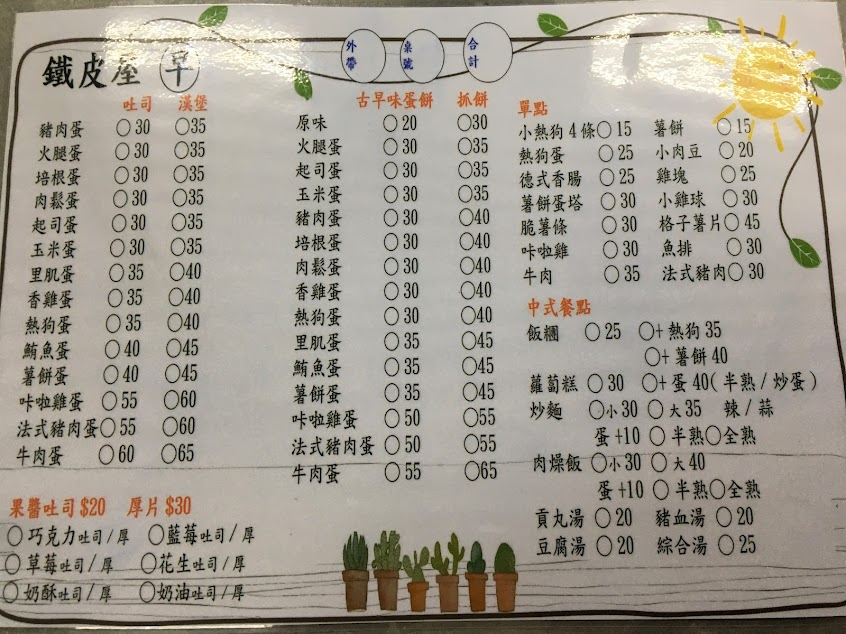 鐵皮屋 早
外帶 桌號 合計
吐司 漢堡
豬肉蛋 ○30 ○35
火腿蛋 ○30 ○35
培根蛋 ○30 ○35
肉鬆蛋 ○30 ○35
起司蛋 ○30 ○35
玉米蛋 ○30 ○35
里肌蛋 ○35 ○40
香雞蛋 ○35 ○40
熱狗蛋 ○35 ○40
鮪魚蛋 ○40 ○45
薯餅蛋 ○40 ○45
咔啦雞蛋 ○55 ○60
法式豬肉蛋○55 ○60
牛肉蛋 ○60 ○65
果醬吐司$20 厚片$30
○巧克力吐司/厚 ○藍莓吐司/厚
○草莓吐司/厚 ○花生吐司/厚
○奶酥吐司/厚 ○奶油吐司/厚
古早味蛋餅 抓餅
原味 ○20 ○30
火腿蛋 ○30 ○35
起司蛋 ○30 ○35
玉米蛋 ○30 ○35
豬肉蛋 ○30 ○40
培根蛋 ○30 ○40
肉鬆蛋 ○30 ○40
香雞蛋 ○30 ○40
熱狗蛋 ○30 ○40
里肌蛋 ○35 ○45
鮪魚蛋 ○35 ○45
薯餅蛋 ○35 ○45
咔啦雞蛋 ○50 ○55
法式豬肉蛋 ○50 ○55
牛肉蛋 ○55 ○65
單點
小熱狗4條○15 薯餅 ○15
熱狗蛋 ○25 小肉豆 ○20
德式香腸 ○25 雞塊 ○25
薯餅蛋塔 ○30 小雞球 ○30
脆薯條 ○30 格子薯片○45
咔啦雞 ○30 魚排 ○30
牛肉 ○35 法式豬肉○30
中式餐點
飯糰 ○25 ○+熱狗35
○+薯餅40
蘿蔔糕 ○30 ○+蛋40(半熟/炒蛋)
炒麵 ○小30 ○大35 辣/蒜
蛋+10 ○半熟○全熟
肉燥飯 ○小30 ○大40
蛋+10 ○半熟○全熟
貢丸湯 ○20 豬血湯 ○20
豆腐湯 ○20 綜合湯 ○25